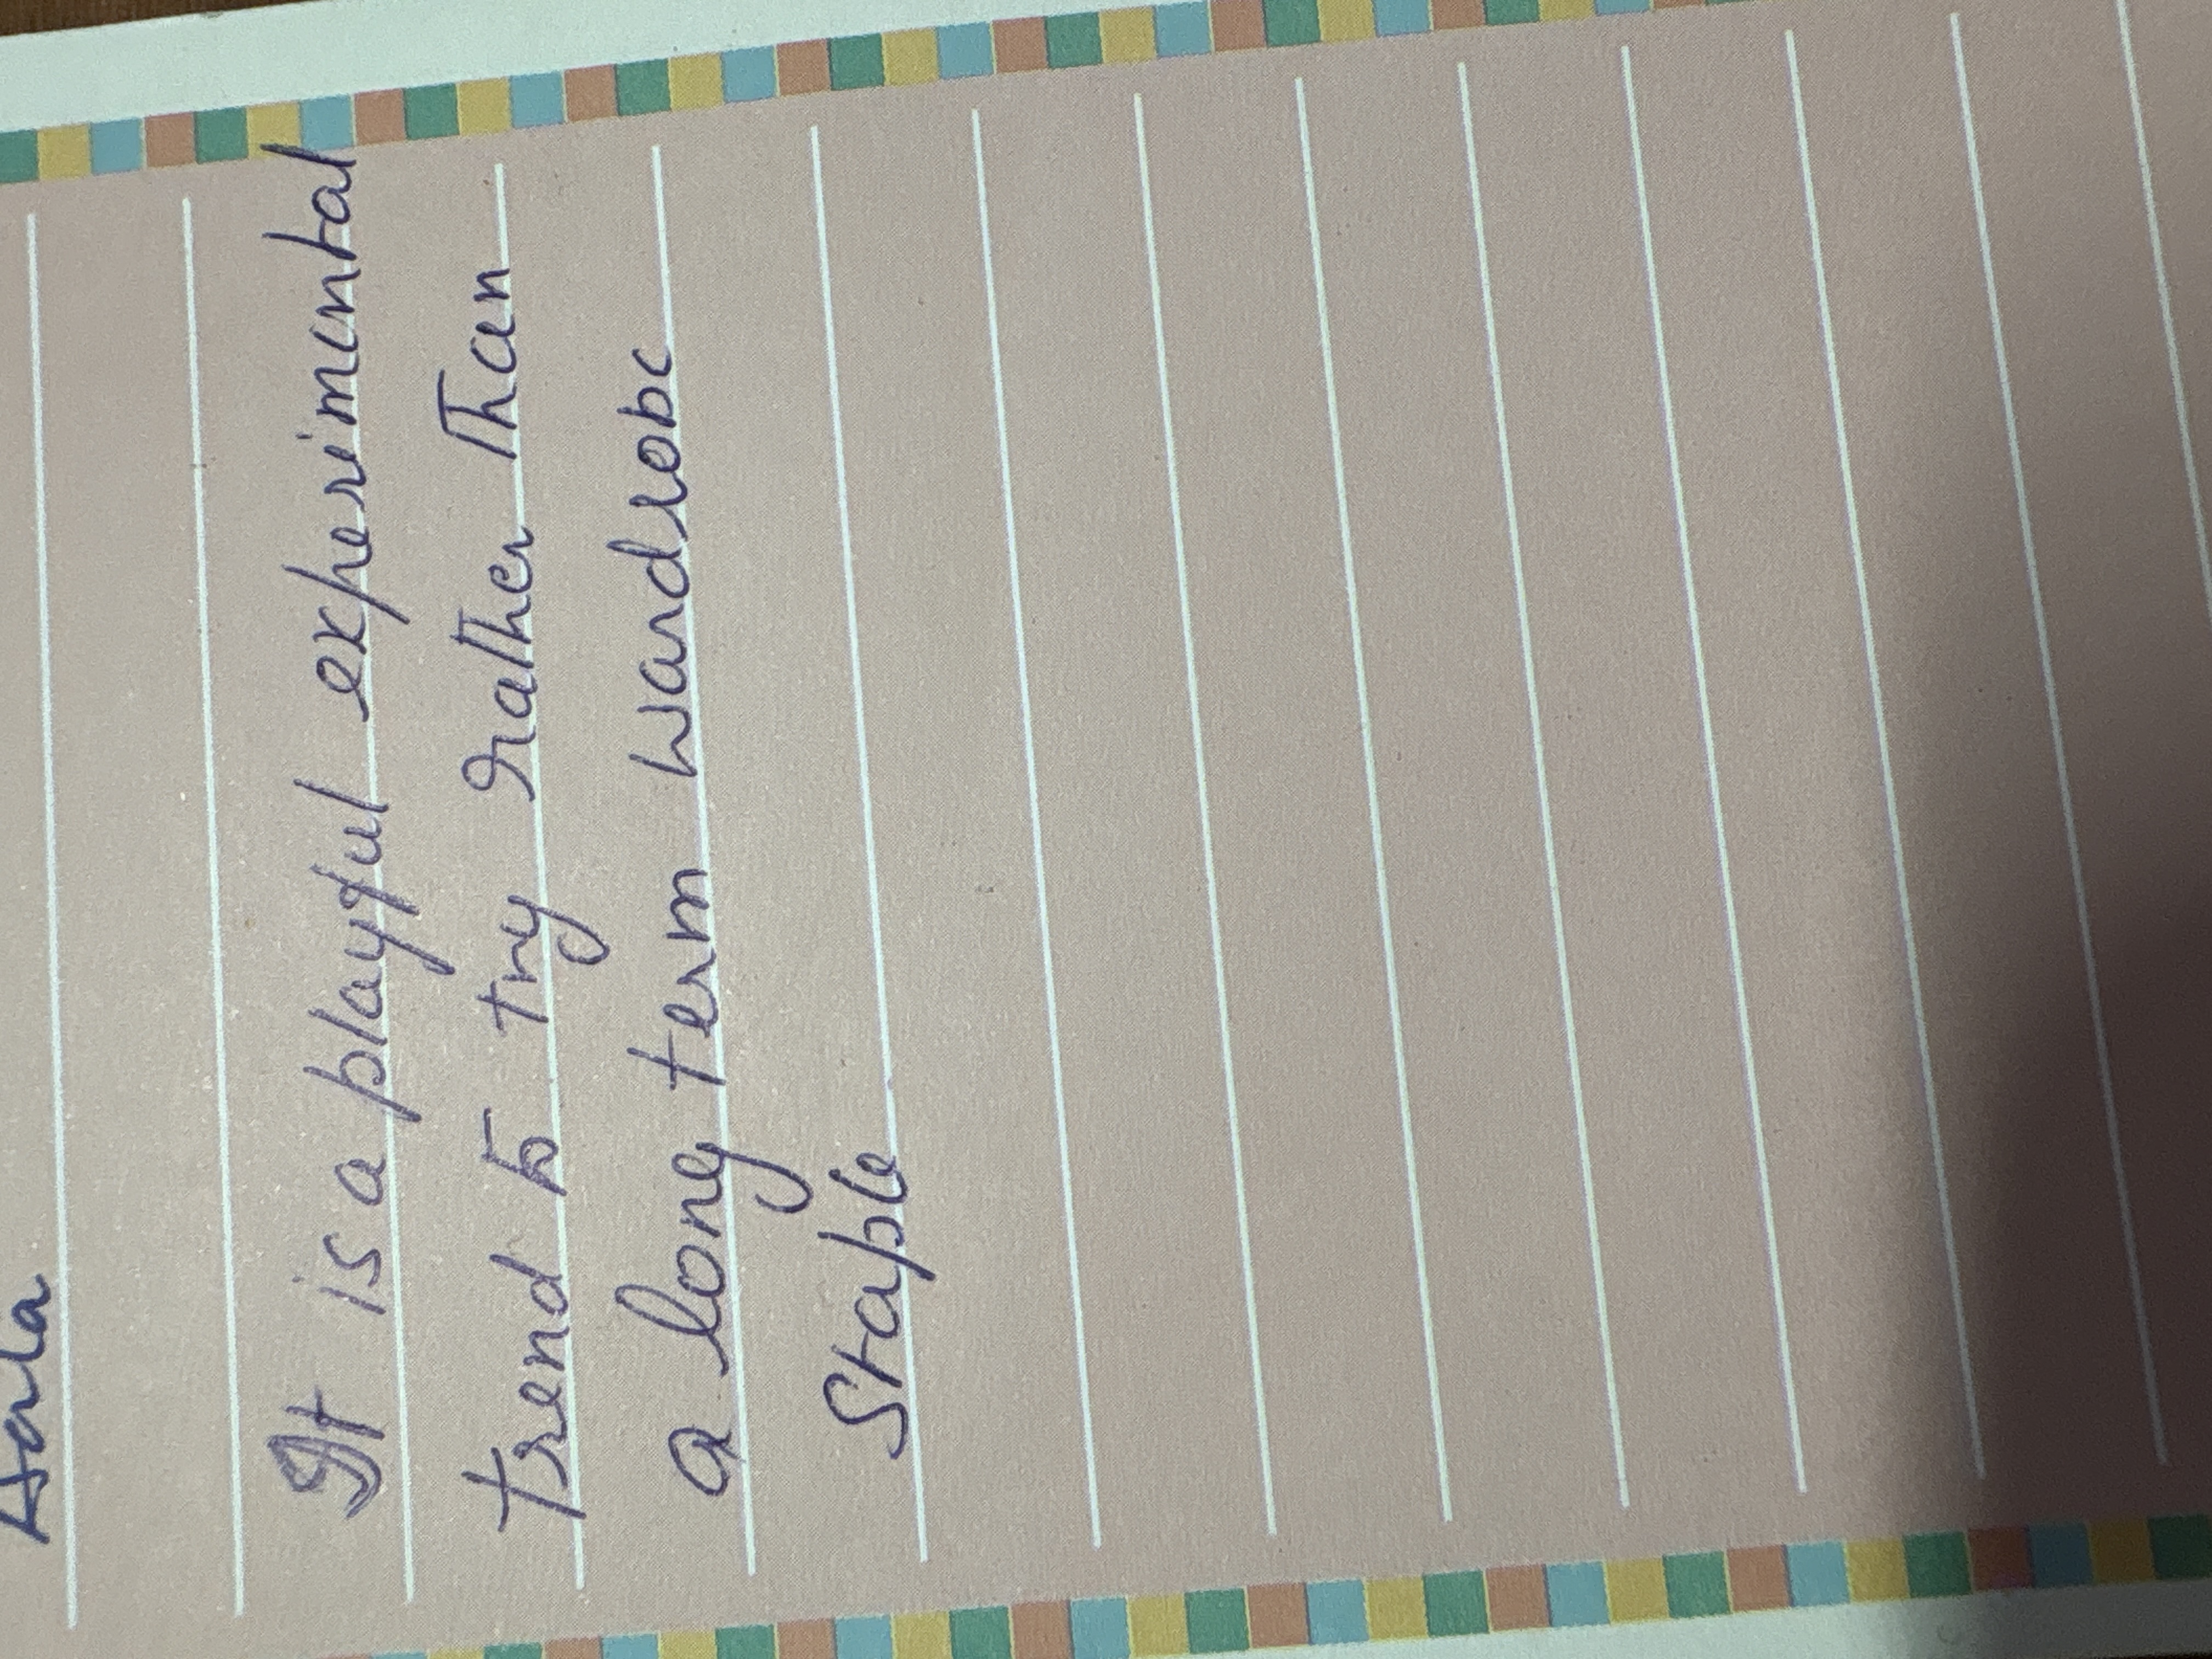 It is a playful experimental
trend to try rather than
a long term wardrobe
staple